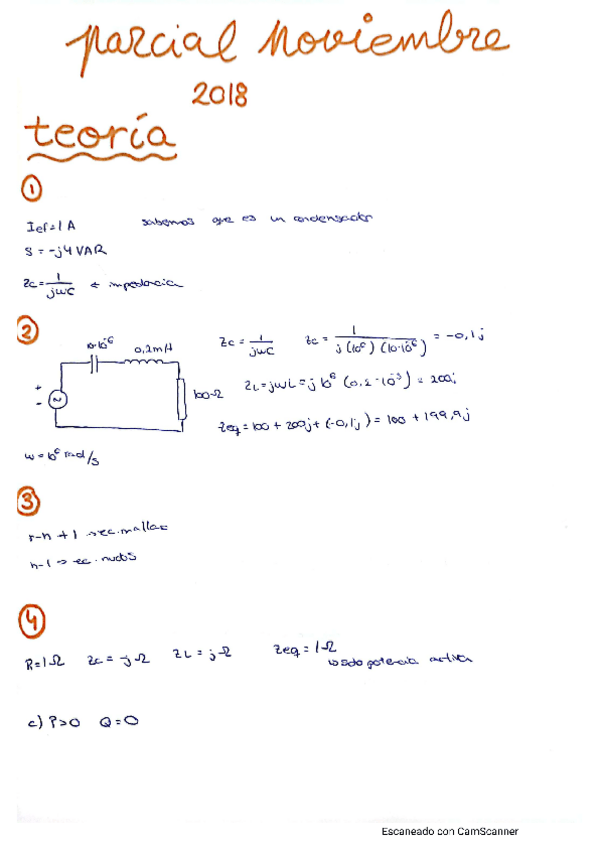 parcial Noviembre
2018
teoría
1
Ief=1 A sabemos que es un condensador
S = -j4 VAR
Zc = 1/jωC ← impedancia
2
10·10⁻⁶ 0,2mH
+
-
~
100Ω
Zc = 1/jωC Zc = 1/j(10⁶)(10·10⁻⁶) = -0,1j
ZL=jωL=j10⁶(0,2·10⁻³) = 200j
Zeq = 100 + 200j + (-0,1j) = 100 + 199,9j
ω = 10⁶ rad/s
3
r-n+1 → ec. mallas
n-1 → ec. nudos
4
R=1Ω Zc = -jΩ ZL = jΩ Zeq = 1Ω
solo potencia activa
c) P>0 Q=0
Escaneado con CamScanner